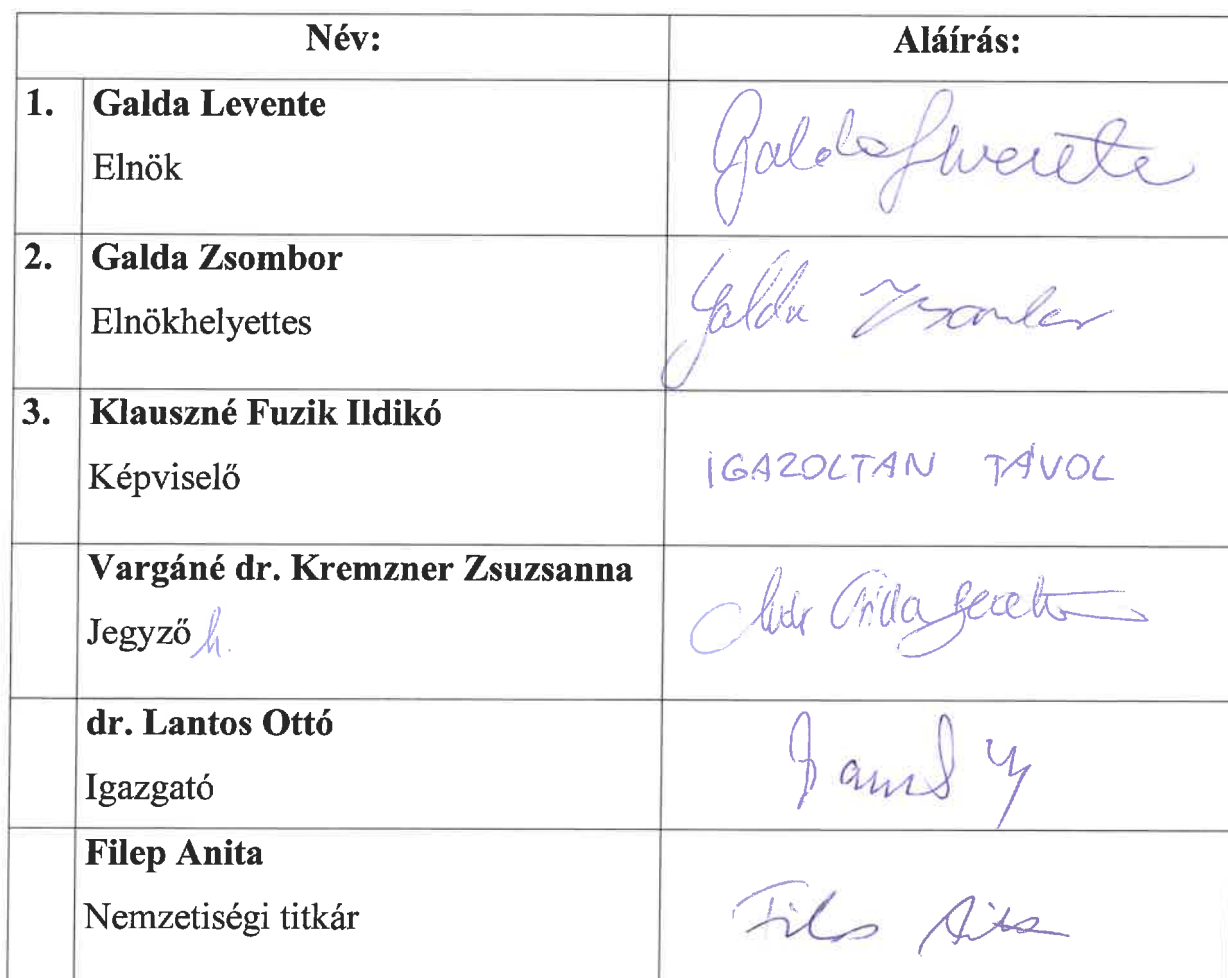 Név: Aláírás:
1. Galda Levente
Elnök
Galda Levente
2. Galda Zsombor
Elnökhelyettes
Galda Zsombor
3. Klauszné Fuzik Ildikó
Képviselő
IGAZOLTAN TÁVOL
Vargáné dr. Kremzner Zsuzsanna
Jegyző h.
dr. Lantos Ottó
Igazgató
Filep Anita
Nemzetiségi titkár
Filep Anita